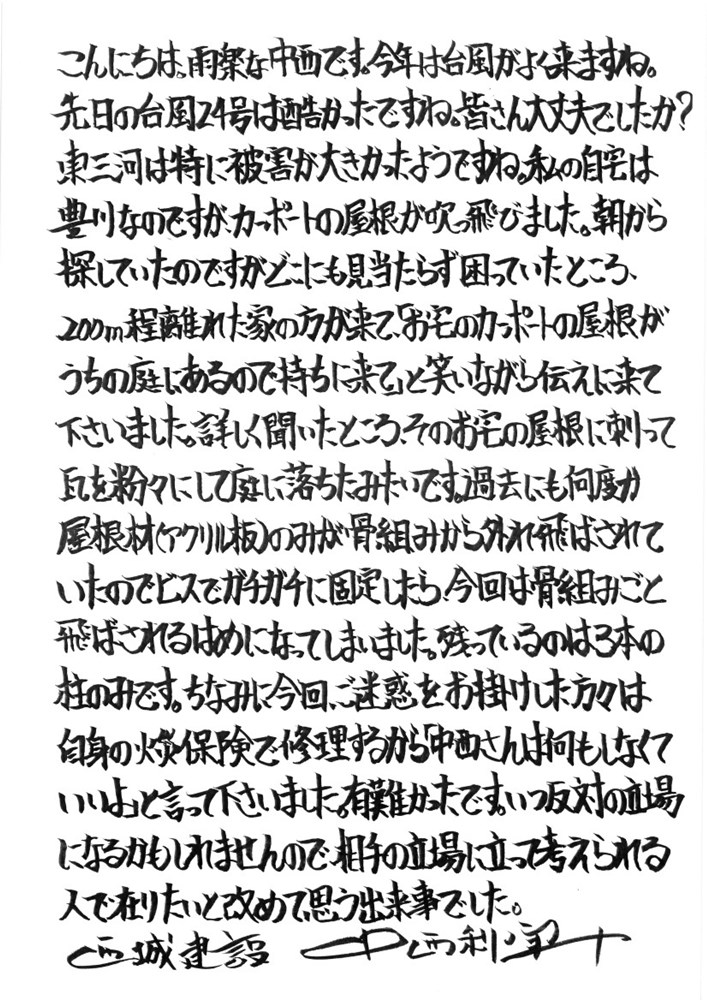 こんにちは。雨楽な中西です。今年は台風がよく来ますね。
先日の台風24号は酷かったですね。皆さん大丈夫でしたか?
東三河は特に被害が大きかったようですね。私の自宅は
豊川なのですが、カーポートの屋根が吹っ飛びました。朝から
探していたのですがどこにも見当たらず困っていたところ、
200m程離れた家の方が来て、「お宅のカーポートの屋根が
うちの庭にあるので持ちに来て」と笑いながら伝えに来て
下さいました。詳しく聞いたところ、そのお宅の屋根に刺って
瓦を粉々にして庭に落ちたみたいです。過去にも何度か
屋根材(アクリル板)のみが骨組みから外れ飛ばされて
いたのでビスでガチガチに固定したら、今回は骨組みごと
飛ばされるはめになってしまいました。残っているのは3本の
柱のみです。ちなみに今回、ご迷惑をお掛けした方々は
自身の火災保険で修理するから「中西さんは何もしなくて
いいよ」と言って下さいました。有難かったです。いつ反対の立場
になるかもしれませんので、相手の立場に立って考えられる
人で在りたいと改めて思う出来事でした。
西城建設 中西利